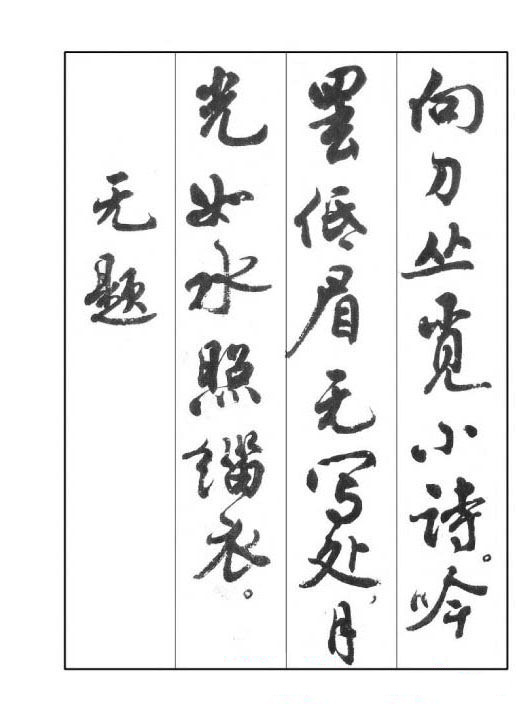 向刀丛觅小诗。吟
罢低眉无写处，月
光如水照缁衣。
无题